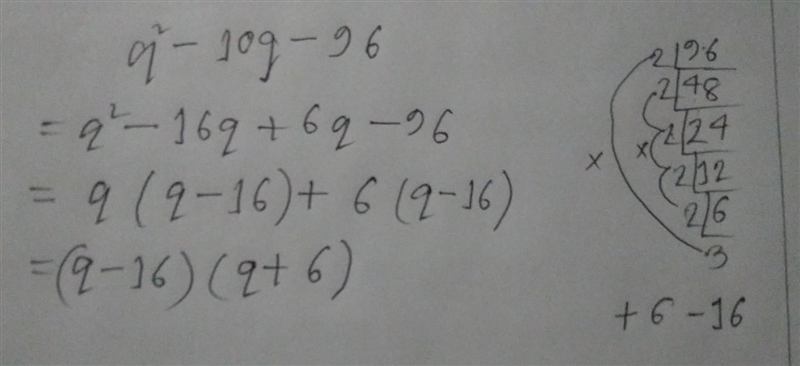 q² - 10q - 96
= q² - 16q + 6q - 96
= q (q - 16) + 6 (q - 16)
= (q - 16) (q + 6)
2 | 96
2 | 48
2 | 24
2 | 12
2 | 6
3
×
×
+ 6 - 16